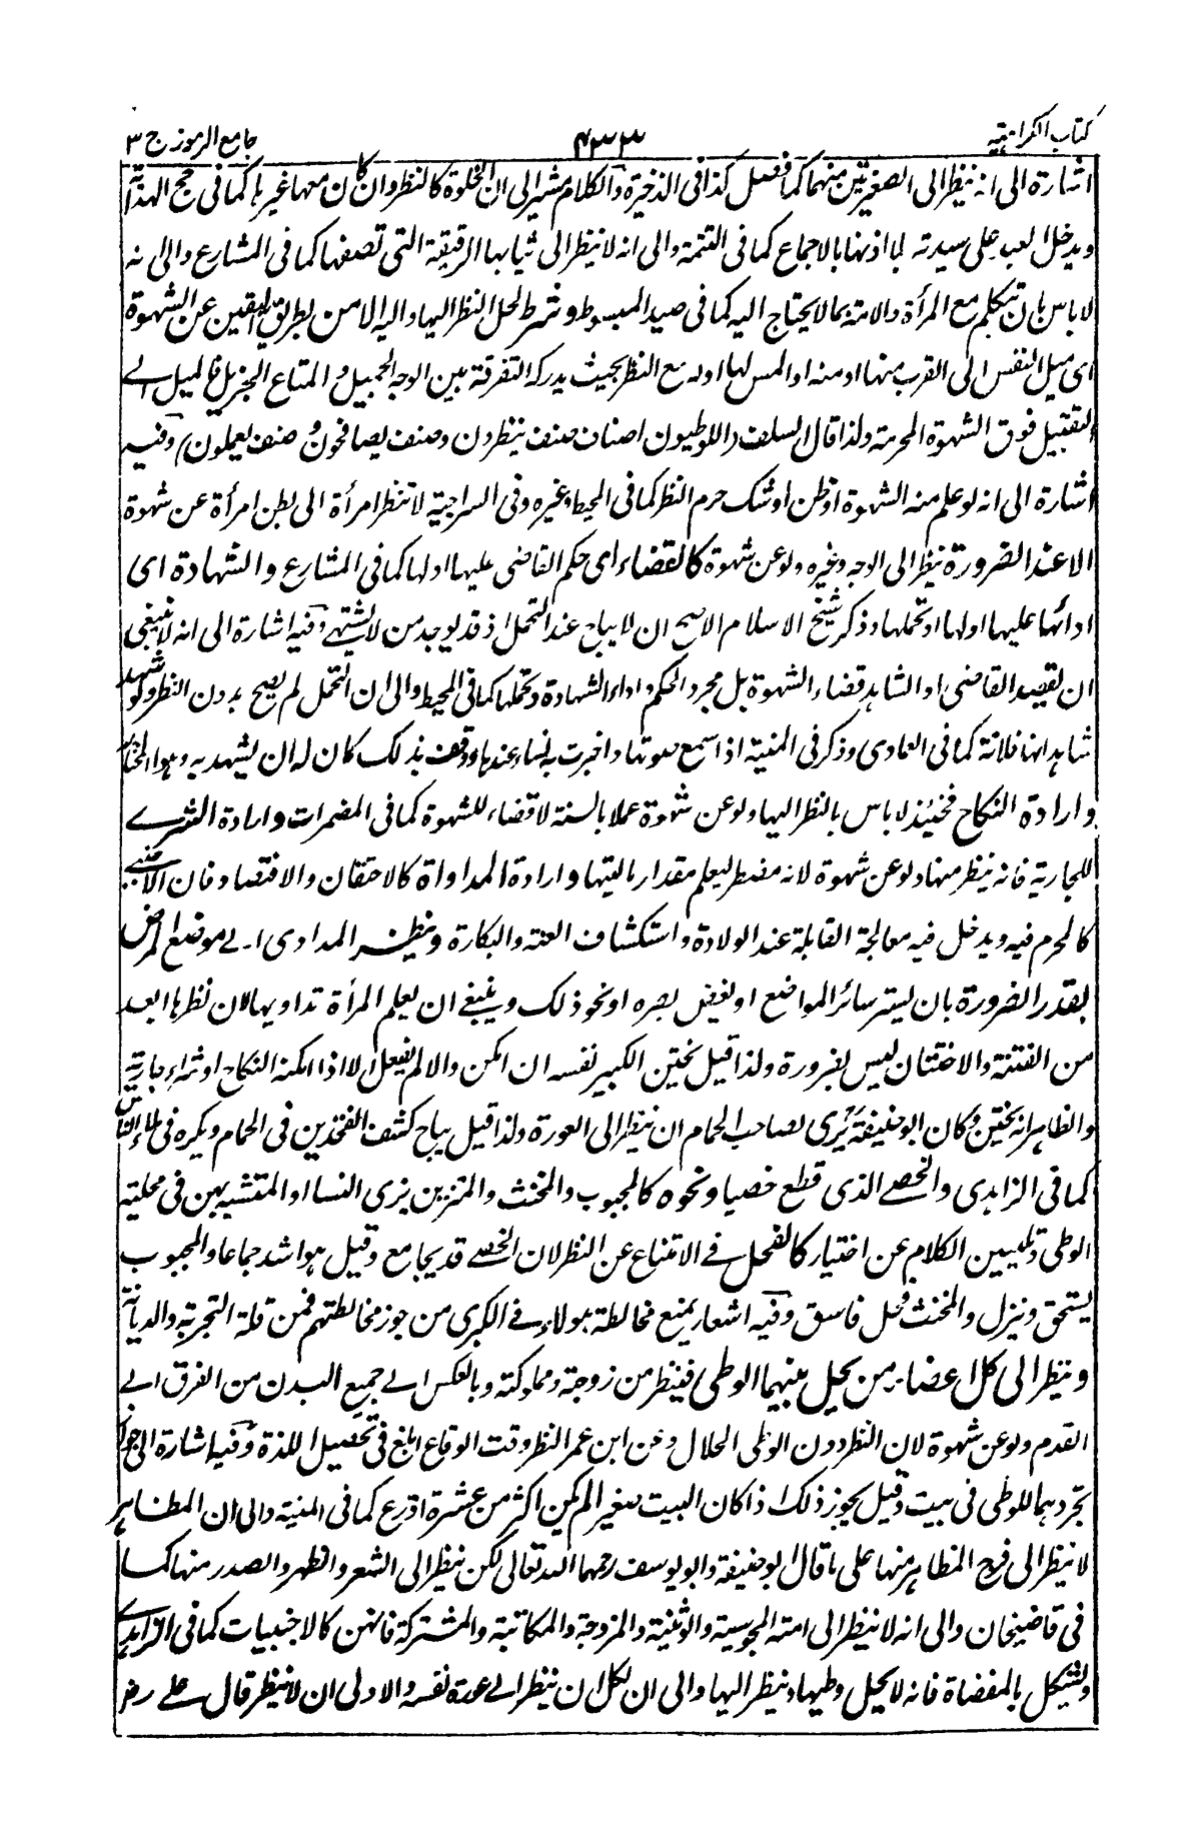 كتاب الكراهية ٤٣٣ جامع الرموز ج ٣
اشارة الى انه ينظر الى الصغيرتين منهما كما فصل كذا فى الذخيرة والكلام مشير الى ان الخلوة كالنظر وان كان معها غيرها كما فى حج الهداية
ويدخل العبد على سيدته بلا اذنها بالاجماع كما فى التتمة والى انه لا ينظر الى ثيابها الرقيقة التى تصفها كما فى المشارع والى انه
لا باس بان تتكلم مع المرأة والامة بما لا يحتاج اليه كما فى صيد المبسوط وشرط لحل النظر اليها واليه الامن بطريق اليقين عن الشهوة
اى ميل النفس الى القرب منها او منه او المس لها اوله مع النظر بحيث يدرك التفرقة بين الوجه الجميل والمتاع الجزيل فالميل الى
التقبيل فوق الشهوة المحرمة ولذا قال السلف (اللوطيون اصناف صنف ينظرون وصنف يصافحون وصنف يعملون) وفيه
اشارة الى انه لو علم منه الشهوة او ظن او شك حرم النظر كما فى المحيط وغيره وفى السراجية لا تنظر امرأة الى بطن امرأة عن شهوة
الا عند الضرورة ينظر الى الوجه وغيره ولو عن شهوة كالقضاء اى حكم القاضى عليها اولها كما فى المشارع والشهادة اى
ادائها عليها اولها او تحملها وذكر شيخ الاسلام الاصح ان لا يباح عند التحمل اذ قد يوجد من لا يشتهى وفيه اشارة الى انه لا ينبغى
ان يقصد القاضى او الشاهد قضاء الشهوة بل مجرد الحكم واداء الشهادة وتحملها كما فى المحيط والى ان التحمل لم يصح بدون النظر ولو شهد
شاهد انها فلانة كما فى العمادى وذكر فى المنية اذا سمع صوتها واخبرت به نساء عندها ووقف بذلك كان له ان يشهد به وهو المختار
وارادة النكاح فحينئذ لا باس بالنظر اليها ولو عن شهوة عملا بالسنة لا قضاء للشهوة كما فى المضمرات وارادة الشرى
للجارية فانه ينظر منها ولو عن شهوة لانه مضطر ليعلم مقدار ماليتها وارادة المداواة كالاحتقان والافتصاد فان الاجنبى
كالمحرم فيه ويدخل فيه معالجة القابلة عند الولادة واستكشاف العنة والبكارة وينظر المداوى الى موضع المرض
بقدر الضرورة بان يستر سائر المواضع او يغض بصره او نحو ذلك وينبغى ان يعلم المرأة تداويها لان نظرها ابعد
من الفتنة والاختتان ليس بضرورة ولذا قيل يختن الكبير نفسه ان امكن والا لم يفعل الا اذا امكنه النكاح او شراء جارية
والظاهر انه يختن وكان ابو حنيفة يرى لصاحب الحمام ان ينظر الى العورة ولذا قيل يباح كشف الفخذين فى الحمام ويكره فى ملاء الناس
كما فى الزاهدى والخصى الذى قطع خصياه ونحوه كالمجبوب والمخنث والمتزين بزى النساء والمتشبه بهن فى محلية
الوطى وتليين الكلام عن اختيار كالفحل فى الامتناع عن النظر لان الخصى قد يجامع وقيل هو اشد جماعا والمجبوب
يستحق وينزل والمخنث فحل فاسق وفيه اشعار بمنع مخالطة هولاء فى الكبرى من جوز مخالطتهم فمن قلة التجربة والديانة
وينظر الى كل اعضاء من يحل بينهما الوطى فينظر من زوجة ومملوكته وبالعكس الى جميع البدن من الفرق الى
القدم ولو عن شهوة لان النظر دون الوطى الحلال وعن ابن عمر النظر وقت الوقاع ابلغ فى تحصيل اللذة وفيه اشارة الى جواز
تجردهما للوطى فى بيت وقيل يجوز ذلك اذا كان البيت صغير الم يكن اكثر من عشرة اذرع كما فى المنية والى ان المظاهر
لا ينظر الى فرج المظاهر منها على ما قال ابو حنيفة وابو يوسف رحمهما الله تعالى لكن ينظر الى الشعر والظهر والصدر منها كما
فى قاضيخان والى انه لا ينظر الى امته المجوسية والوثنية والمزوجة والمكاتبة والمشتركة فانهن كالاجنبيات كما فى الزاهدى
ويشكل بالمفضاة فانه لا يحل وطيها وينظر اليها والى ان لكل ان ينظر الى عورة نفسه والاولى ان لا ينظر قال على رضـ